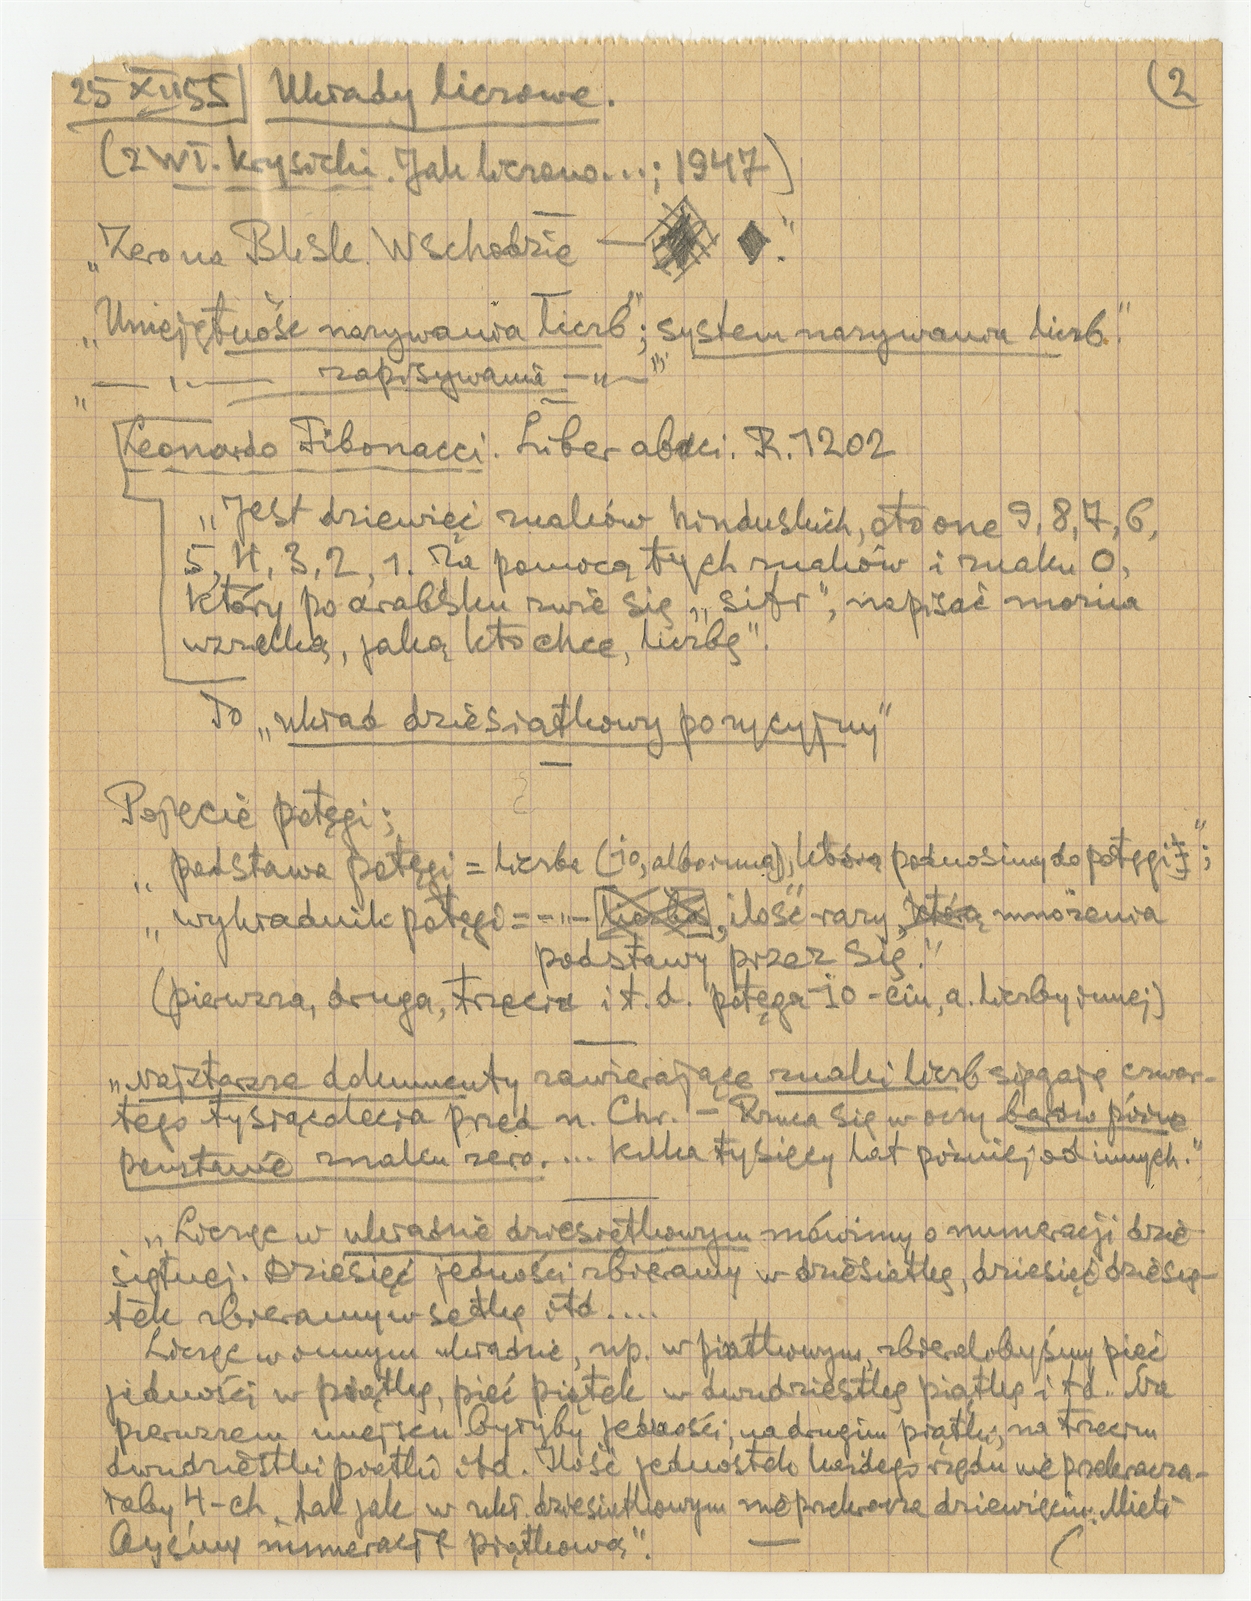 25 XII 55 | Układy liczowe. (2
(z Wł. Krysicki. Jak liczono...; 1947)
„Zero na Blisk. Wschodzie — ◆."
„Umiejętność nazywania liczb"; „system nazywania liczb."
„— „ — zapisywania — „ —"
Leonardo Fibonacci. Liber abaci. R. 1202
„Jest dziewięć znaków hinduskich, oto one 9, 8, 7, 6,
5, 4, 3, 2, 1. Za pomocą tych znaków i znaku 0,
który po arabsku zwie się „sifr", napisać można
wszelką, jaką kto chce, liczbę".
To „układ dziesiątkowy pozycyjny"
Pojęcie potęgi;
„podstawa potęgi = liczba (10, albo inna), którą podnosimy do potęgi";
„wykładnik potęgi = - „ - liczba, ilość razy, którą mnożenia
podstawy przez się."
(pierwsza, druga, trzecia i t. d. potęga 10-ciu, a. liczby innej)
„Najstarsze dokumenty zawierające znaki liczb sięgają czwar-
tego tysiąclecia przed n. Chr. — Rzuca się w oczy bardzo późne
powstanie znaku zero. ... kilka tysięcy lat później od innych."
„Licząc w układzie dziesiątkowym mówimy o numeracji dzie-
siętnej. Dziesięć jedności zbieramy w dziesiątkę, dziesięć dziesią-
tek zbieramy w setkę itd....
Licząc w innym układzie, np. w piątkowym, zbieralibyśmy pięć
jedności w piątkę, pięć piątek w dwudziestkę piątkę i td. Na
pierwszem miejscu byłyby jedności, na drugim piątki, na trzecim
dwudziestki piątki itd. Ilość jednostek każdego rzędu nie przekracza-
łaby 4-ch, tak jak w ukł. dziesiątkowym nie przekracza dziewięciu. Mieli
byśmy numerację piątkową".